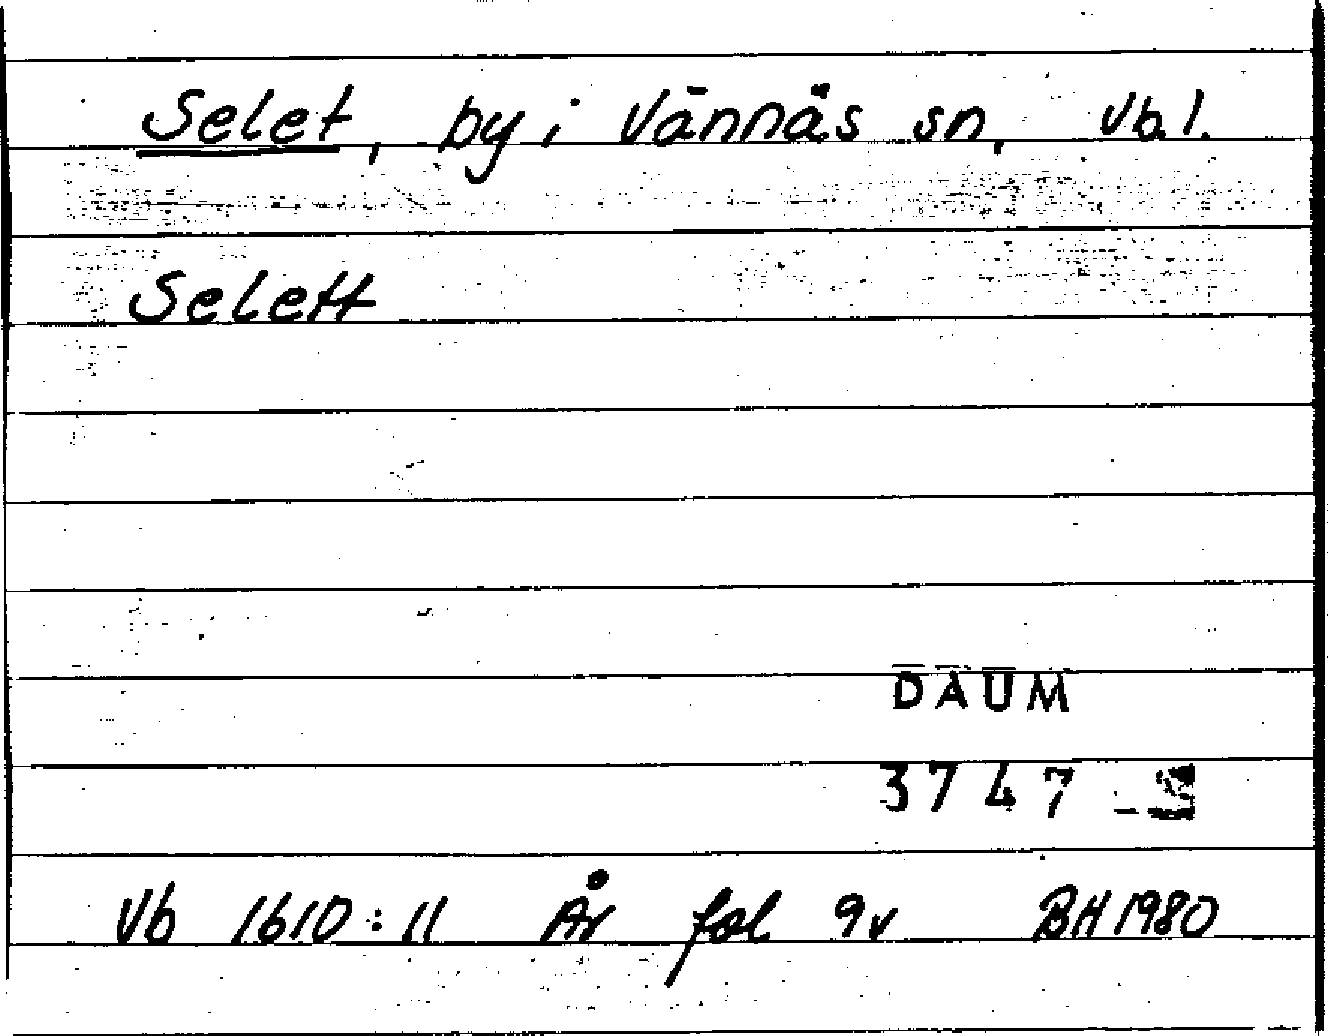 Selet, by i Vännäs sn, Vbl.
Selett
DAUM
3747
Vb 1610:11 År fol 9v BH 1980